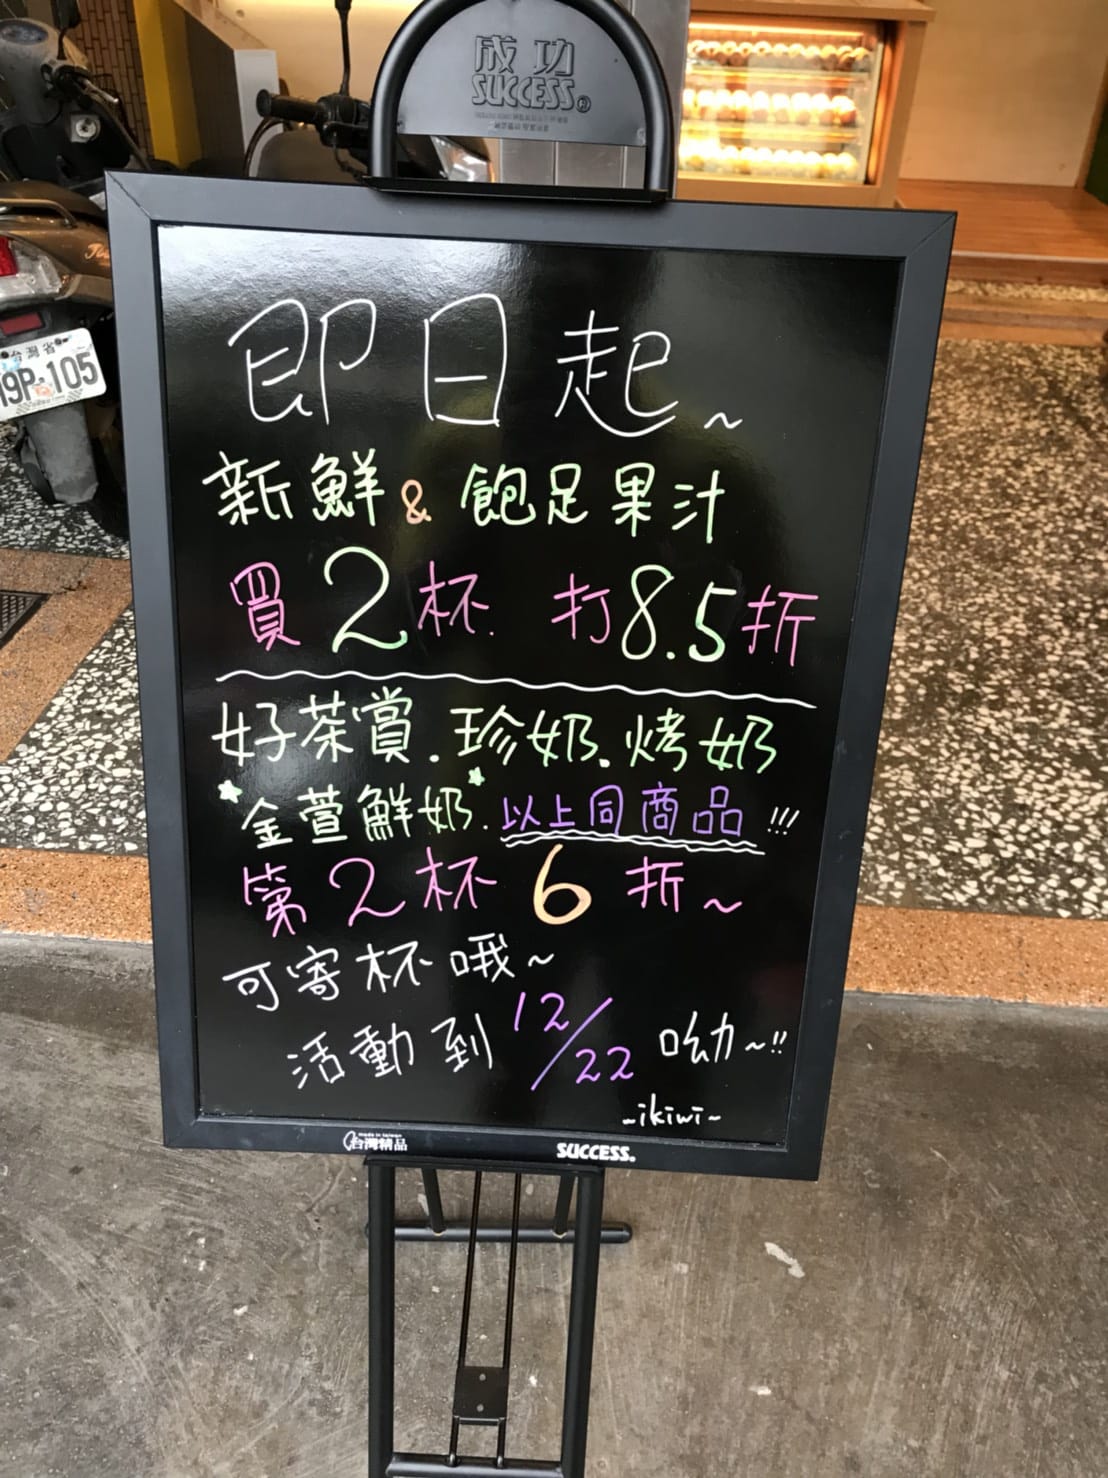 成功
SUCCESS®
台灣省
19P-105
即日起~
新鮮 & 飽足果汁
買2杯 打8.5折
好茶賞.珍奶.烤奶
金萱鮮奶.以上同商品!!!
第2杯 6 折~
可寄杯哦~
活動到 12/22 呦~!!
~ikiwi~
made in taiwan
台灣精品 SUCCESS®